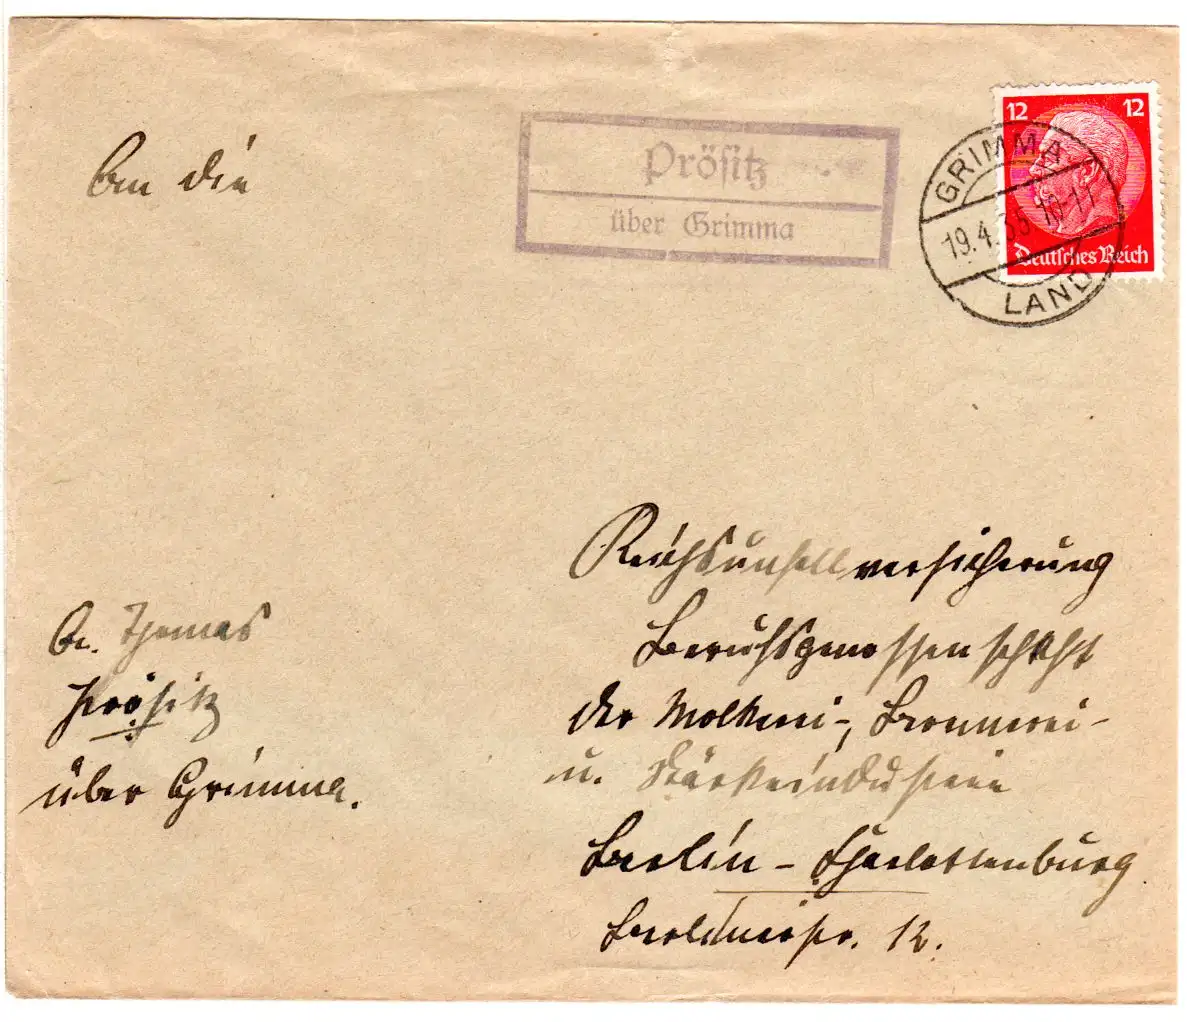 An die
Prösitz
über Grimma
12 12
Deutsches Reich
GRIMMA
19.4.35.10-11
LAND
Reichsunfallversicherung
Berufsgenossenschaft
der Molkerei-, Brennerei-
u. Stärkeindustrie
Berlin - Charlottenburg
Berlinerstr. 12.
Thomas
Prösitz
über Grimma.